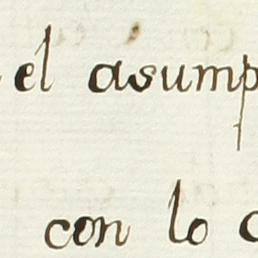 el asump
con lo